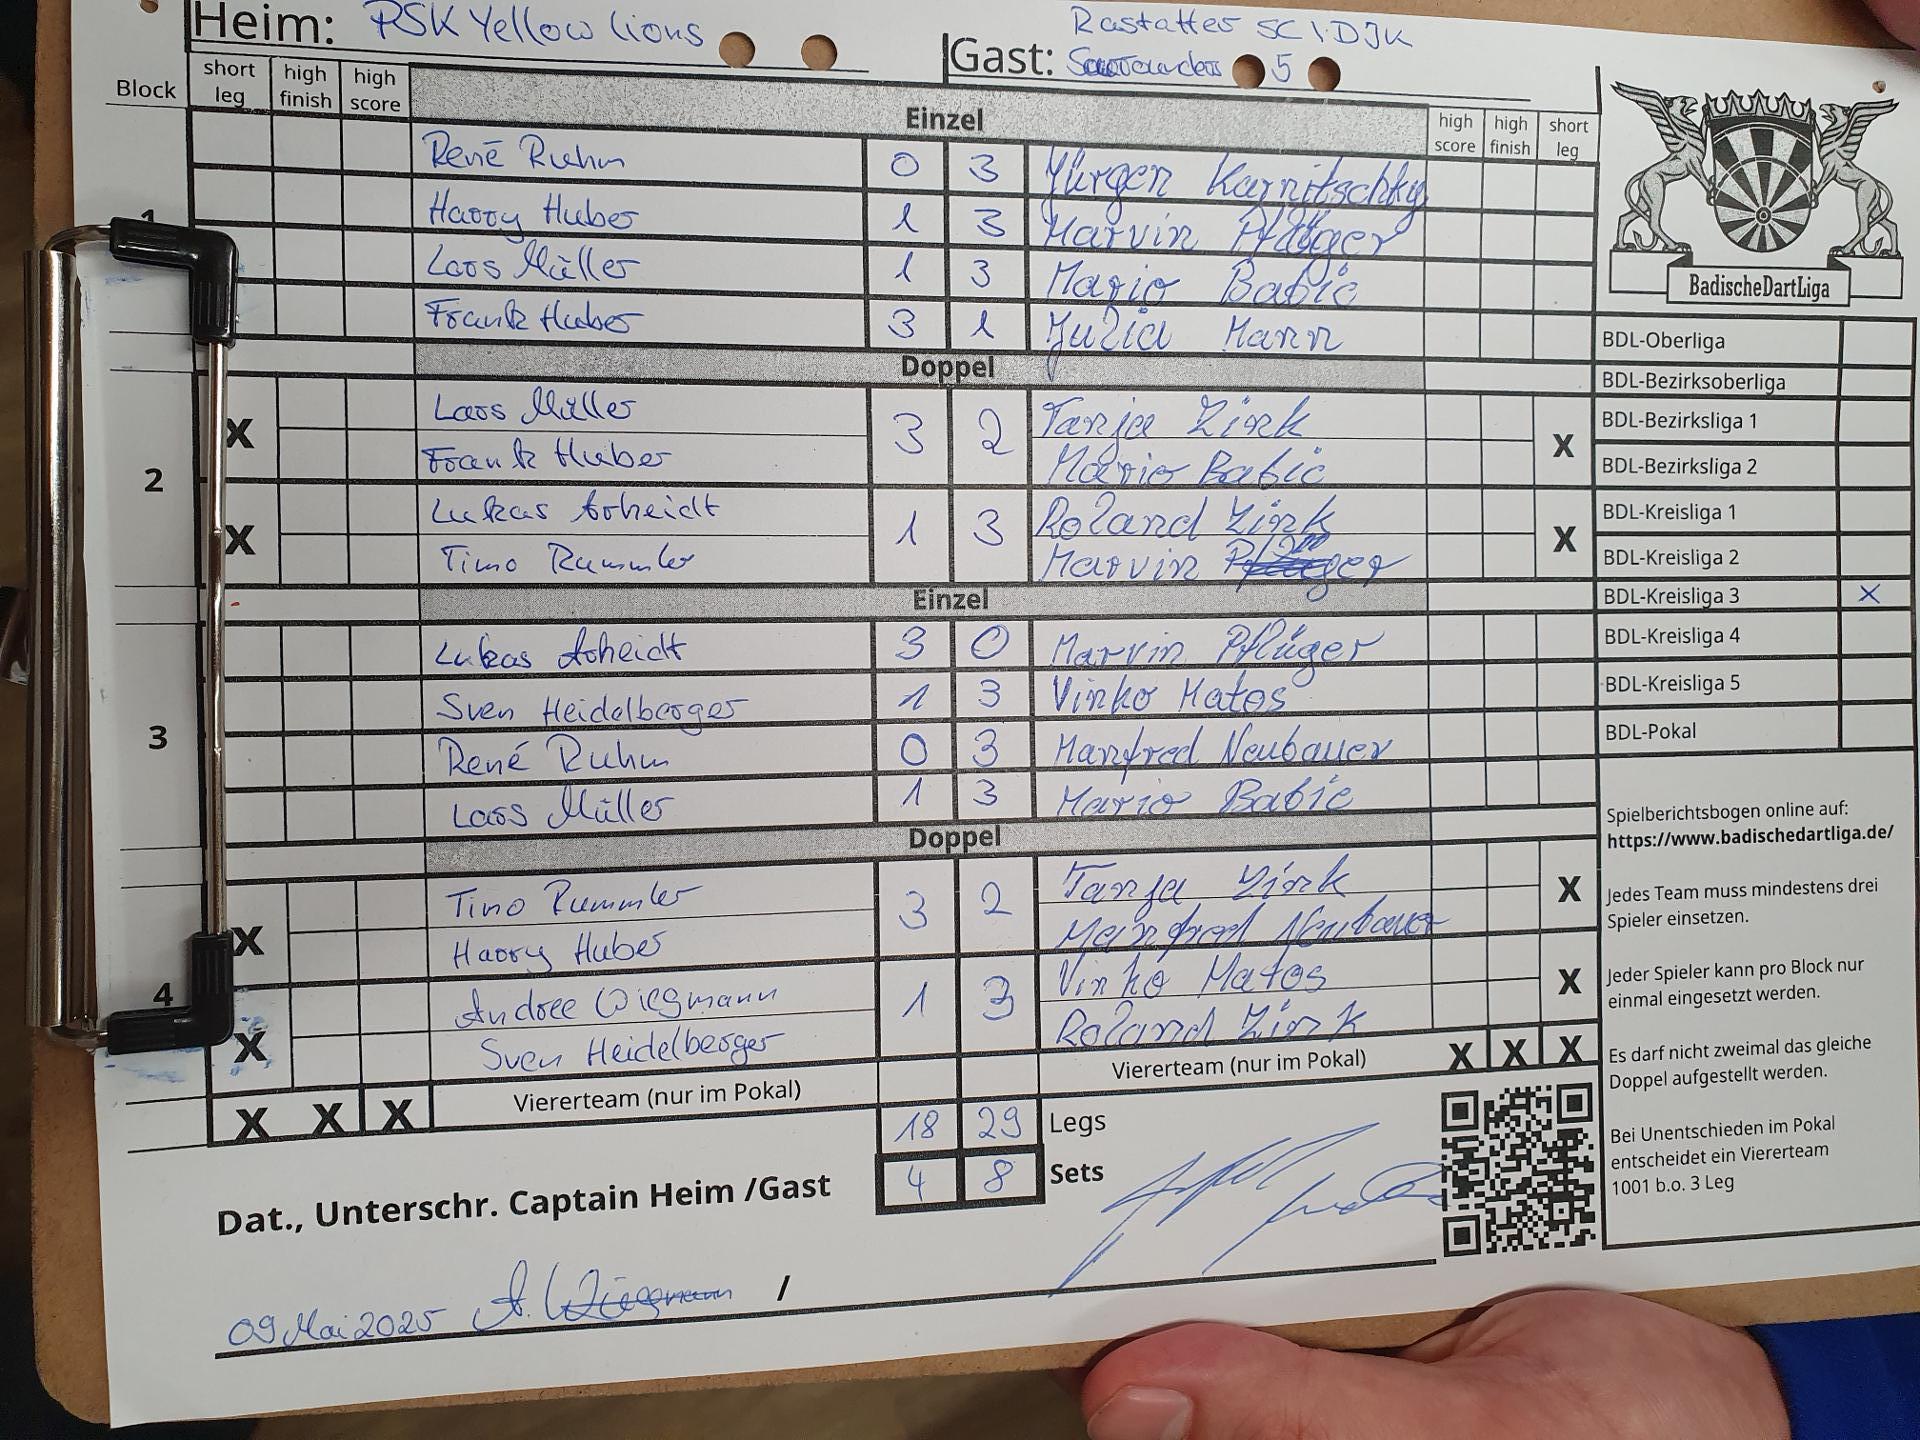 Heim: PSK Yellow Lions
Gast: Rastatter SC/DJK
5
Block short leg high finish high score Einzel high score high finish short leg
René Ruhm 0 3 Jürgen Karnitschky
1 Harry Huber 1 3 Marvin Pflüger
Lars Müller 1 3 Mario Babic
Frank Huber 3 1 Julia Mann
Doppel
2
X Lars Müller 3 2 Tanja Zink X
Frank Huber Mario Babic
X Lukas Arheidt 1 3 Roland Zink X
Timo Rummler Marvin Pflüger
Einzel
3
Lukas Arheidt 3 0 Marvin Pflüger
Sven Heidelberger 1 3 Vinko Matos
René Ruhm 0 3 Manfred Neubauer
Lars Müller 1 3 Mario Babic
Doppel
4
X Timo Rummler 3 2 Tanja Zink X
Harry Huber Manfred Neubauer
X Andree Wiegmann 1 3 Vinko Matos X
Sven Heidelberger Roland Zink
X X X Viererteam (nur im Pokal) Viererteam (nur im Pokal) X X X
18 29 Legs
4 8 Sets
Dat., Unterschr. Captain Heim /Gast
09 Mai 2025 A. Wiegmann /
BadischeDartLiga
BDL-Oberliga
BDL-Bezirksoberliga
BDL-Bezirksliga 1
BDL-Bezirksliga 2
BDL-Kreisliga 1
BDL-Kreisliga 2
BDL-Kreisliga 3 X
BDL-Kreisliga 4
BDL-Kreisliga 5
BDL-Pokal
Spielberichtsbogen online auf:
https://www.badischedartliga.de/
Jedes Team muss mindestens drei
Spieler einsetzen.
Jeder Spieler kann pro Block nur
einmal eingesetzt werden.
Es darf nicht zweimal das gleiche
Doppel aufgestellt werden.
Bei Unentschieden im Pokal
entscheidet ein Viererteam
1001 b.o. 3 Leg